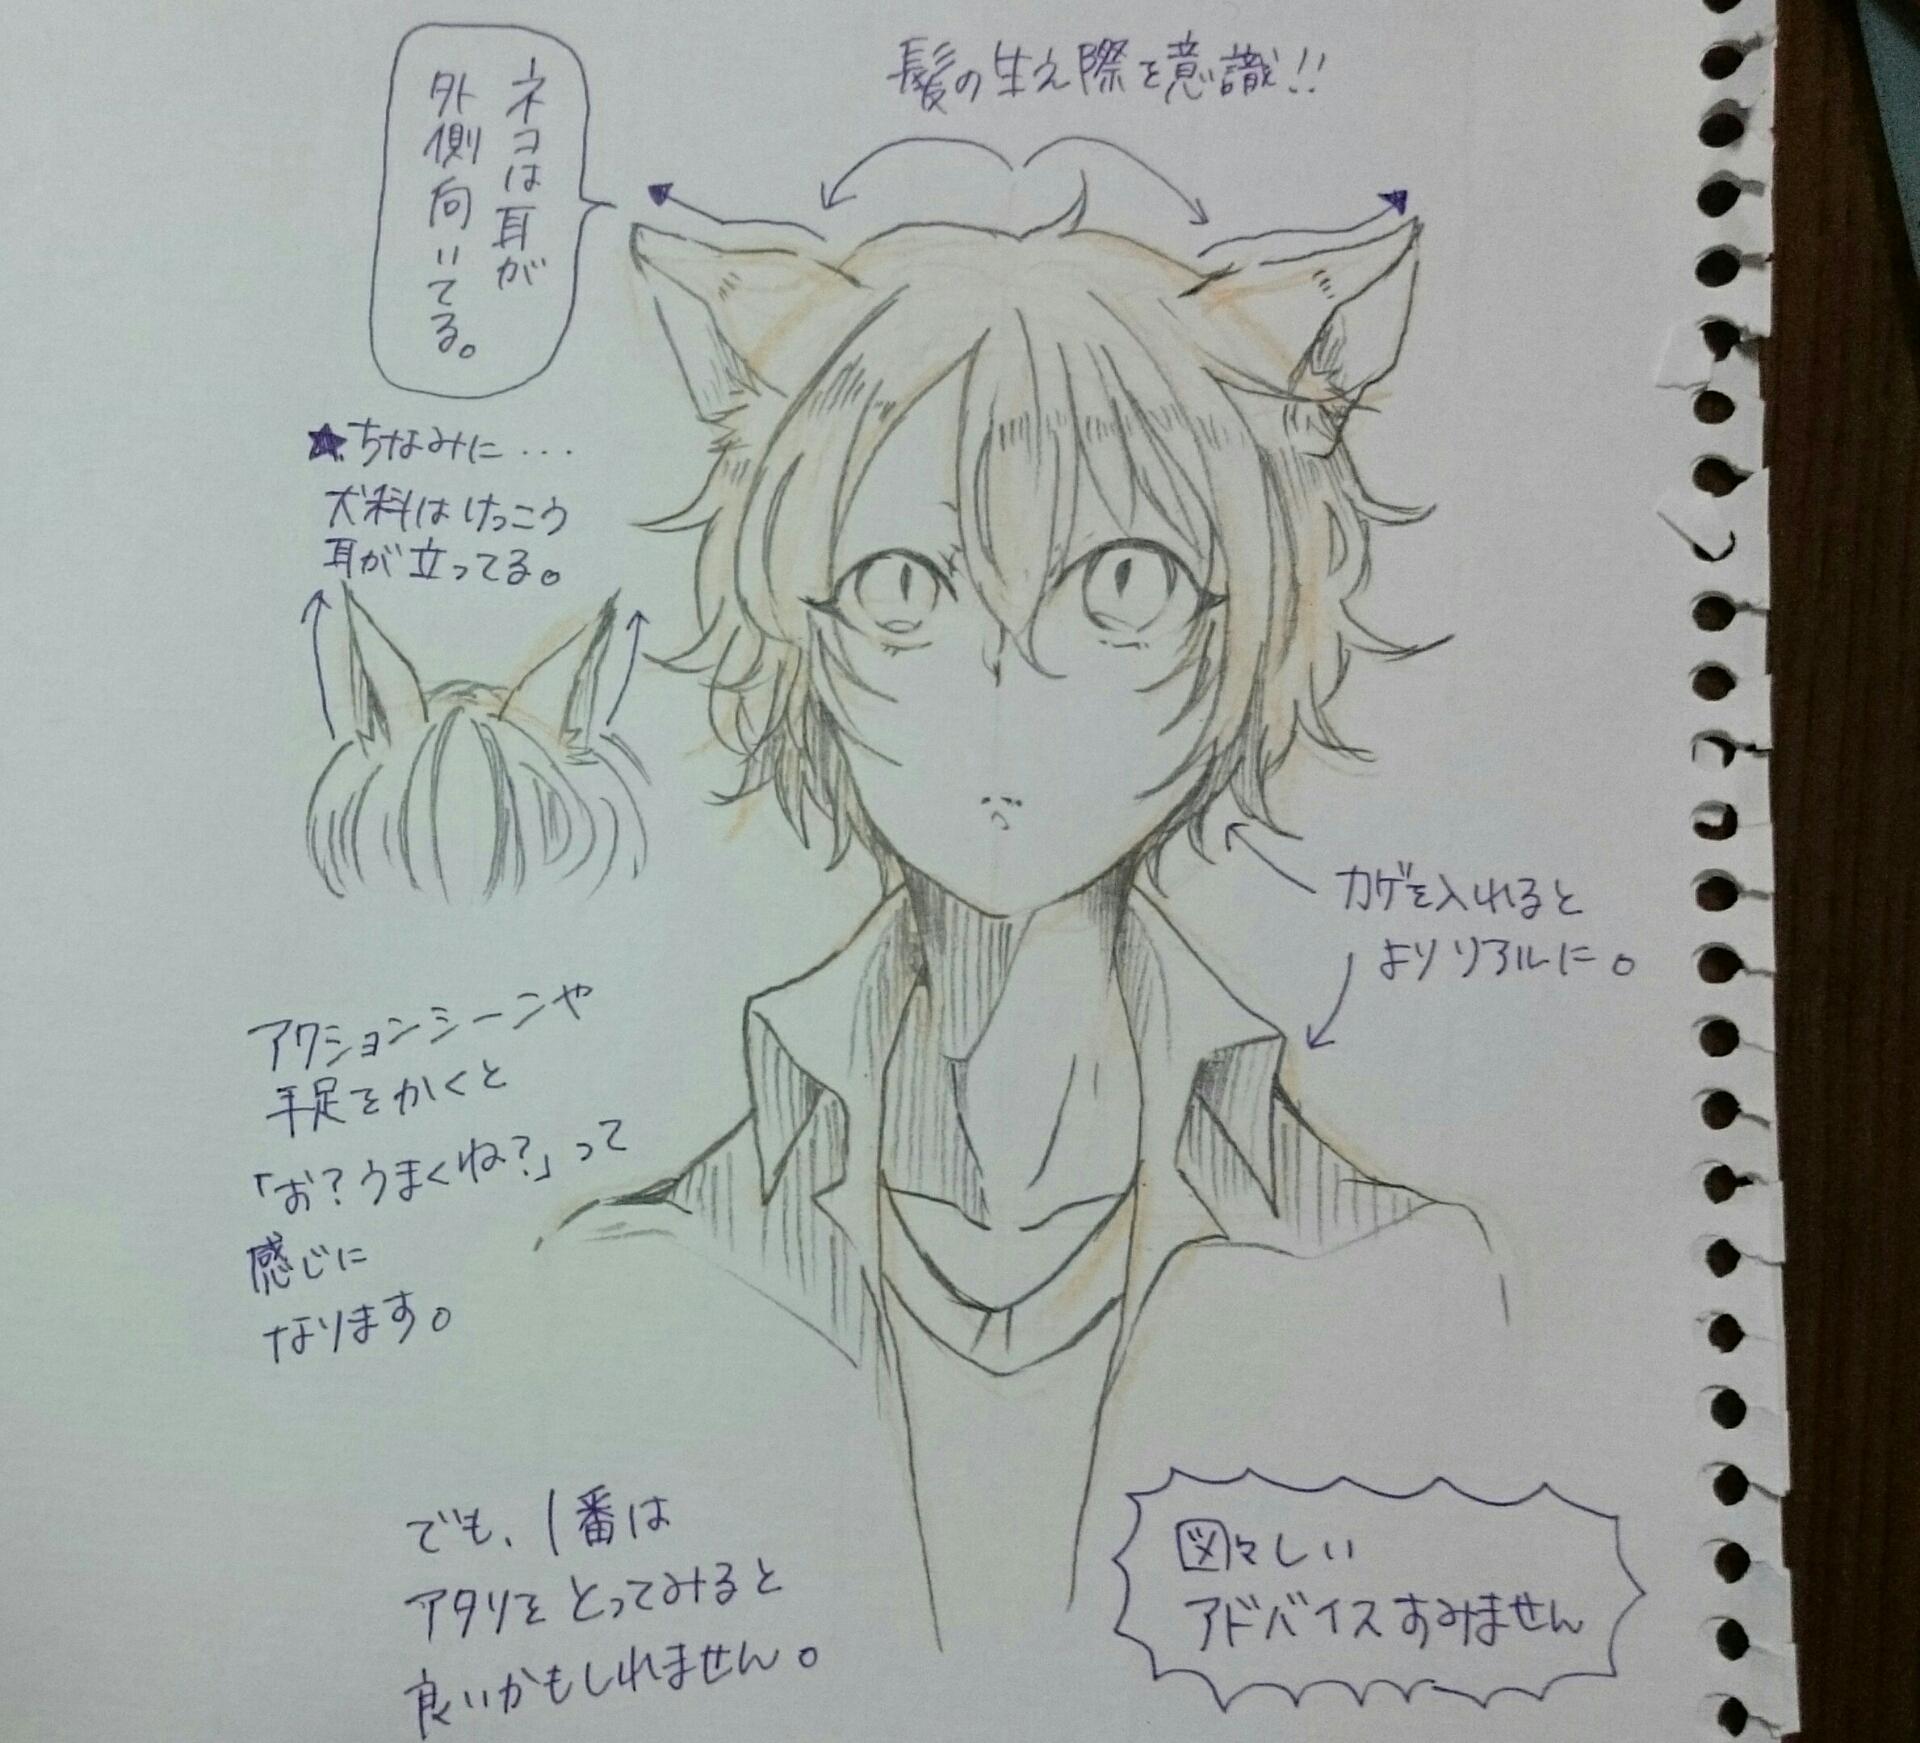 髪の生え際を意識!!
ネコは耳が
外側向いてる。
★ちなみに...
犬科はけっこう
耳が立ってる。
カゲを入れると
よりリアルに。
アクションシーンや
手足をかくと
「お？うまくね？」って
感じに
なります。
でも、1番は
アタリをとってみると
良いかもしれません。
図々しい
アドバイスすみません